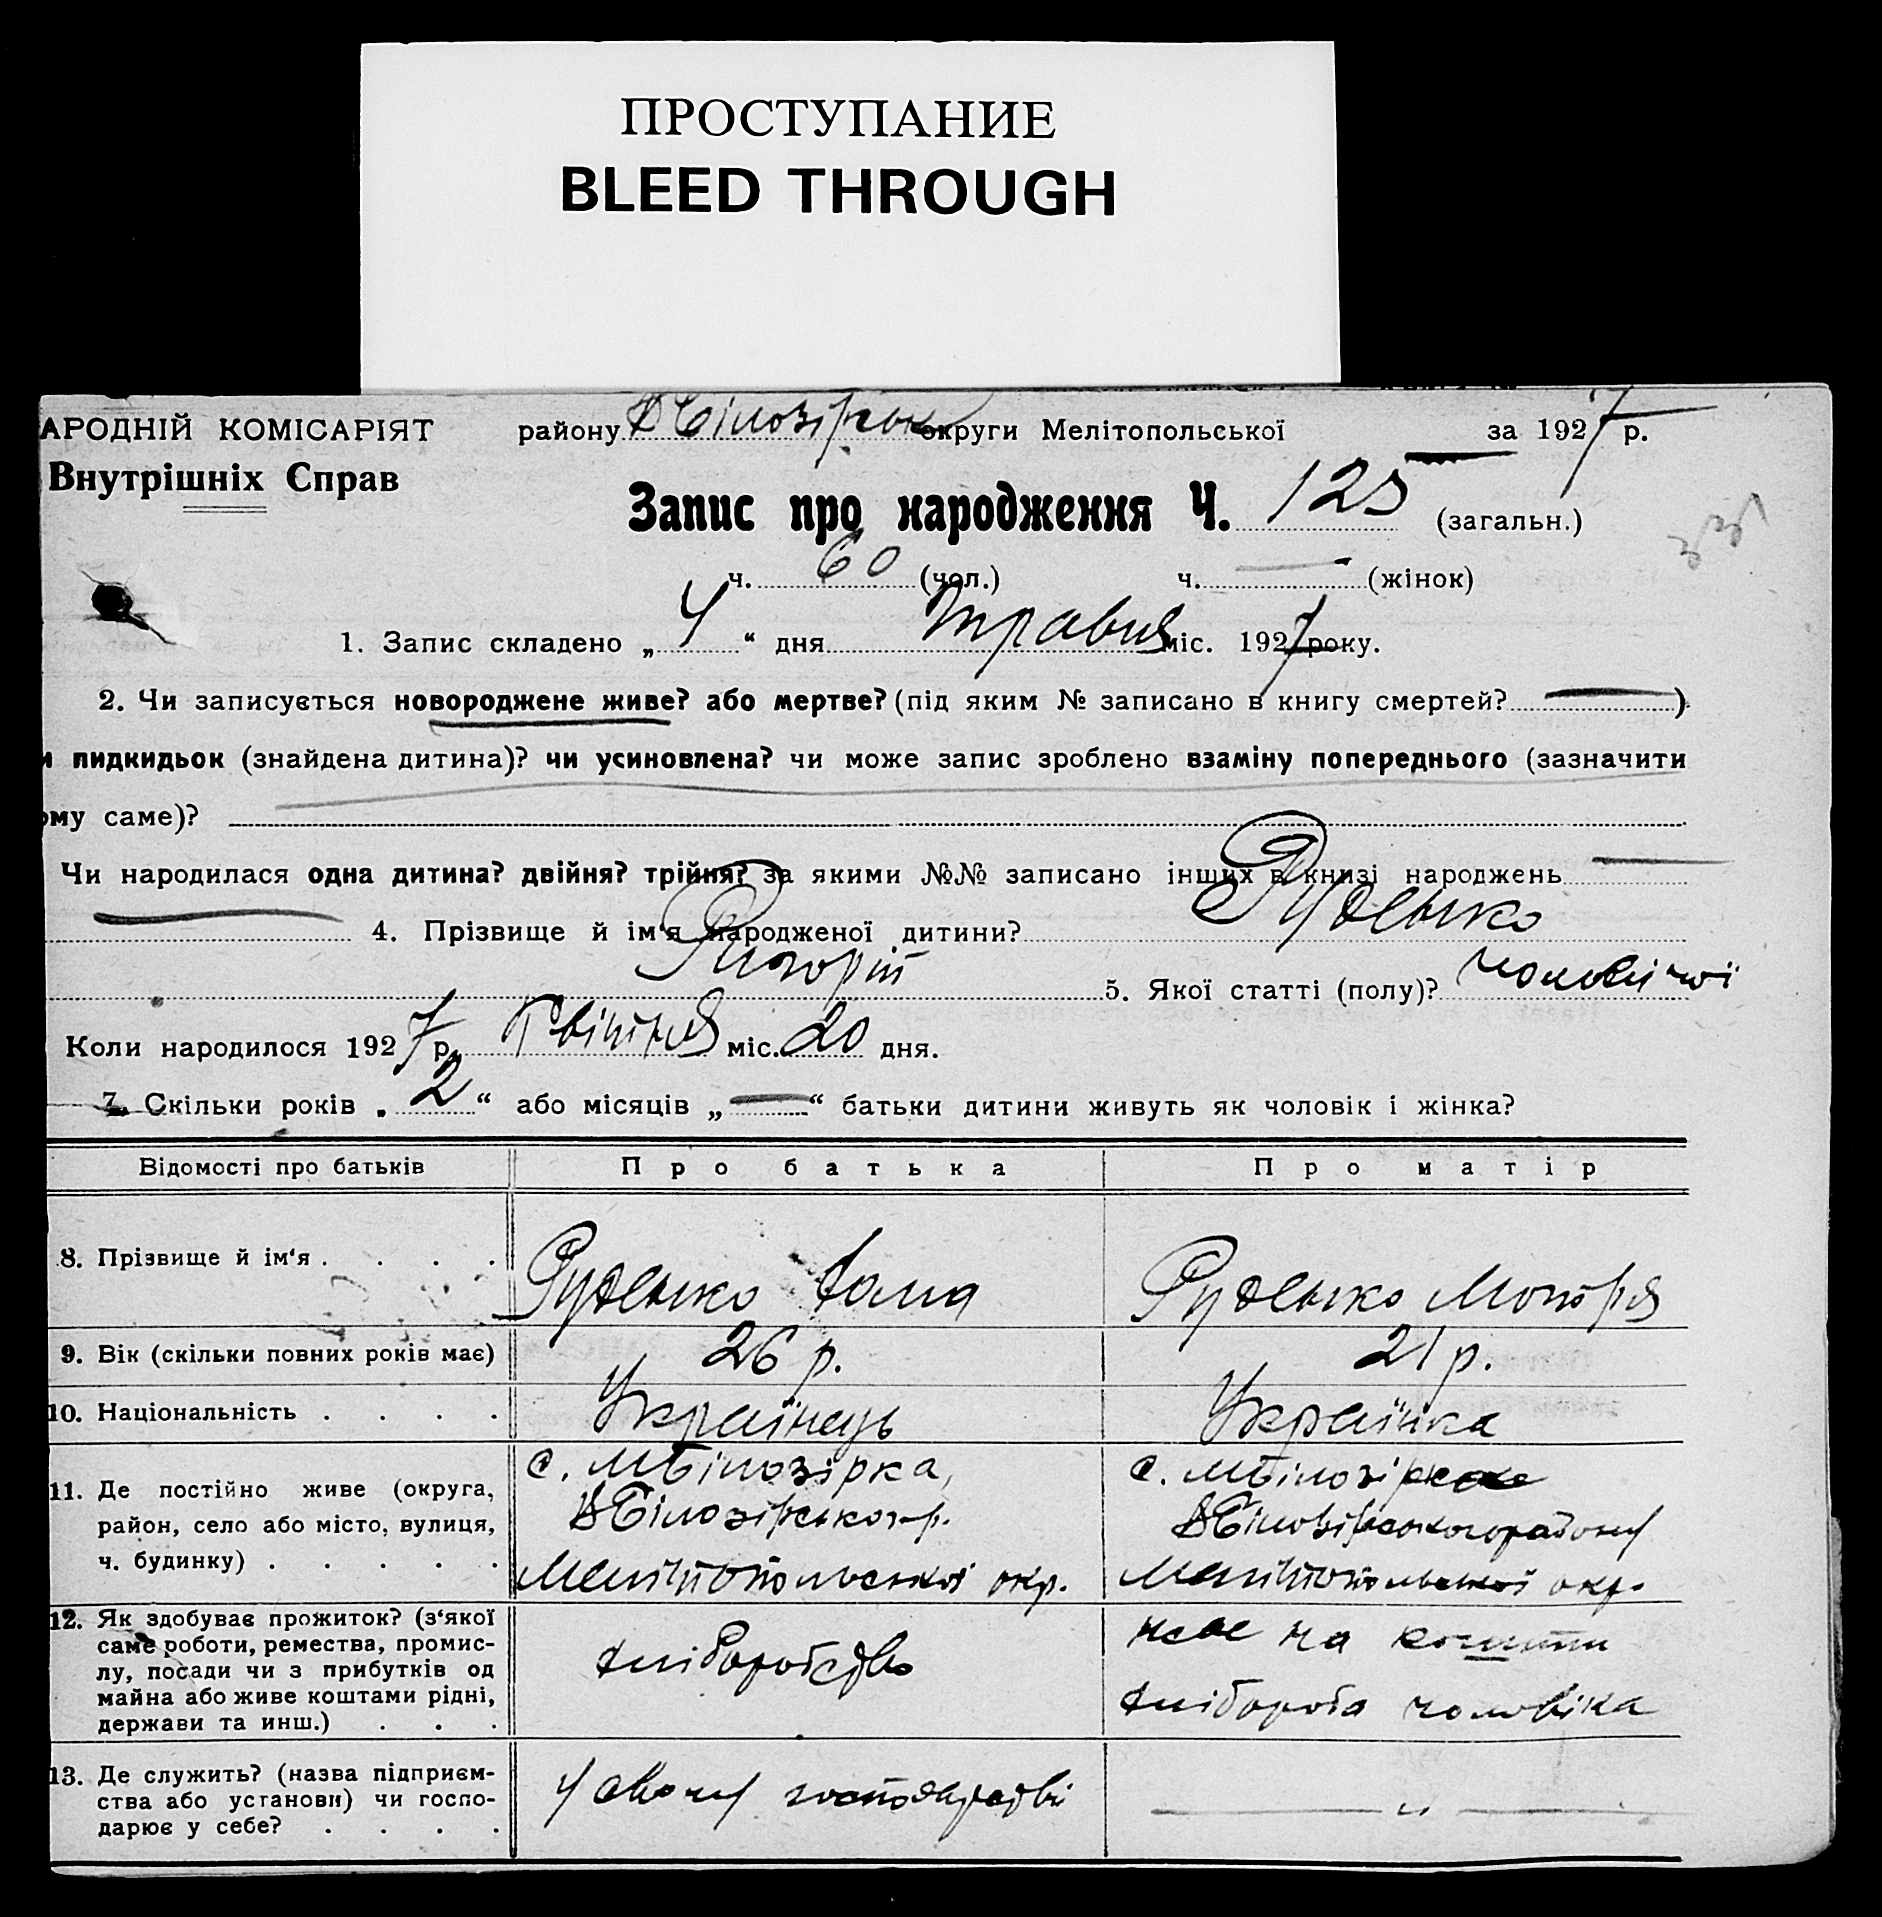 ПРОСТУПАНИЕ
BLEED THROUGH
АРОДНІЙ КОМІСАРІЯТ району округи Мелітопольської за 1927 р.
Внутрішніх Справ
Запис про народження Ч. 125 (загальн.)
ч. 60 (чол.) ч. — (жінок)
1. Запис складено „ 4 “ дня травня міс. 1927 року.
2. Чи записується новороджене живе? або мертве? (під яким № записано в книгу смертей? — )
и пидкидьок (знайдена дитина)? чи усиновлена? чи може запис зроблено взаміну попереднього (зазначити
ому саме)?
Чи народилася одна дитина? двійня? трійня? за якими №№ записано інших в книзі народжень —
4. Прізвище й ім‘я народженої дитини? Руденко
5. Якої статті (полу)? чоловічої
Коли народилося 1927 р. Квітня міс. 20 дня.
7. Скільки років „ 2 “ або місяців „ — “ батьки дитини живуть як чоловік і жінка?
Відомості про батьків Про батька Про матір
8. Прізвище й ім‘я . . . . Руденко Хома Руденко Мотря
9. Вік (скільки повних років має) 26 р. 21 р.
10. Національність . . . . Українець Українка
11. Де постійно живе (округа, с. М Білозірка, с. М Білозірка
район, село або місто, вулиця, В Білозірського р. В Білозірського району
ч. будинку) . . . . . Мелітопольської окр. Мелітопольської окр.
12. Як здобуває прожиток? (з‘якої
саме роботи, ремества, промис-
лу, посади чи з прибутків од
майна або живе коштами рідні,
держави та инш.) . . .
хліборобство
на кошти
хлібороба чоловіка
13. Де служить? (назва підприєм-
ства або установи) чи госпо-
дарює у себе? . . . .
У свому господарстві
— „ —